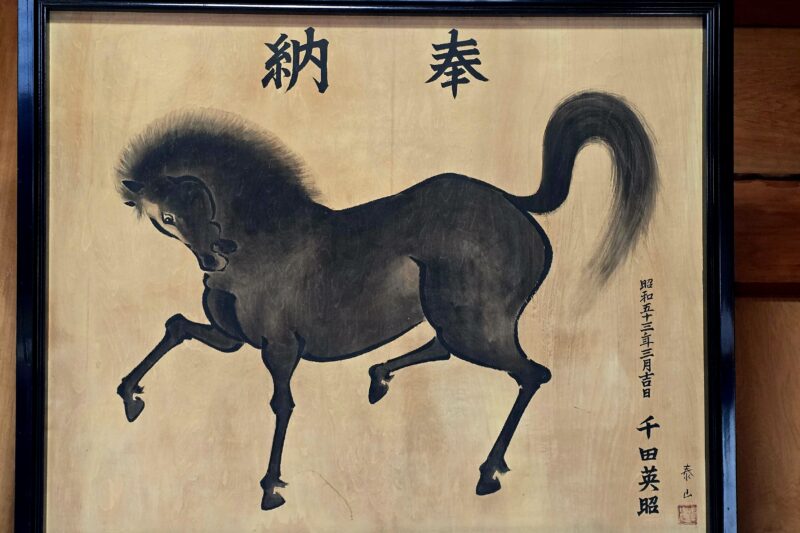 奉納
昭和五十三年三月吉日
千田英昭
泰山